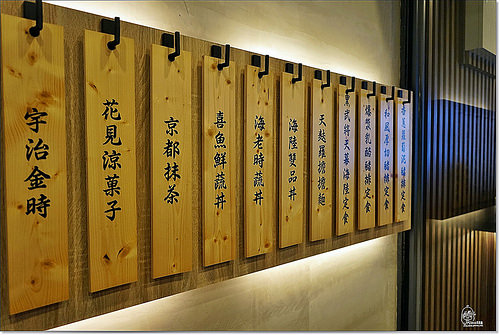 宇治金時
花見涼菓子
京都抹茶
喜魚鮮蔬丼
海老時蔬丼
海陸雙品丼
天麩羅擔擔麵
武將天幕海陸定食
爆漿乳酪豬排定食
和風厚切豬排定食
豬排定食